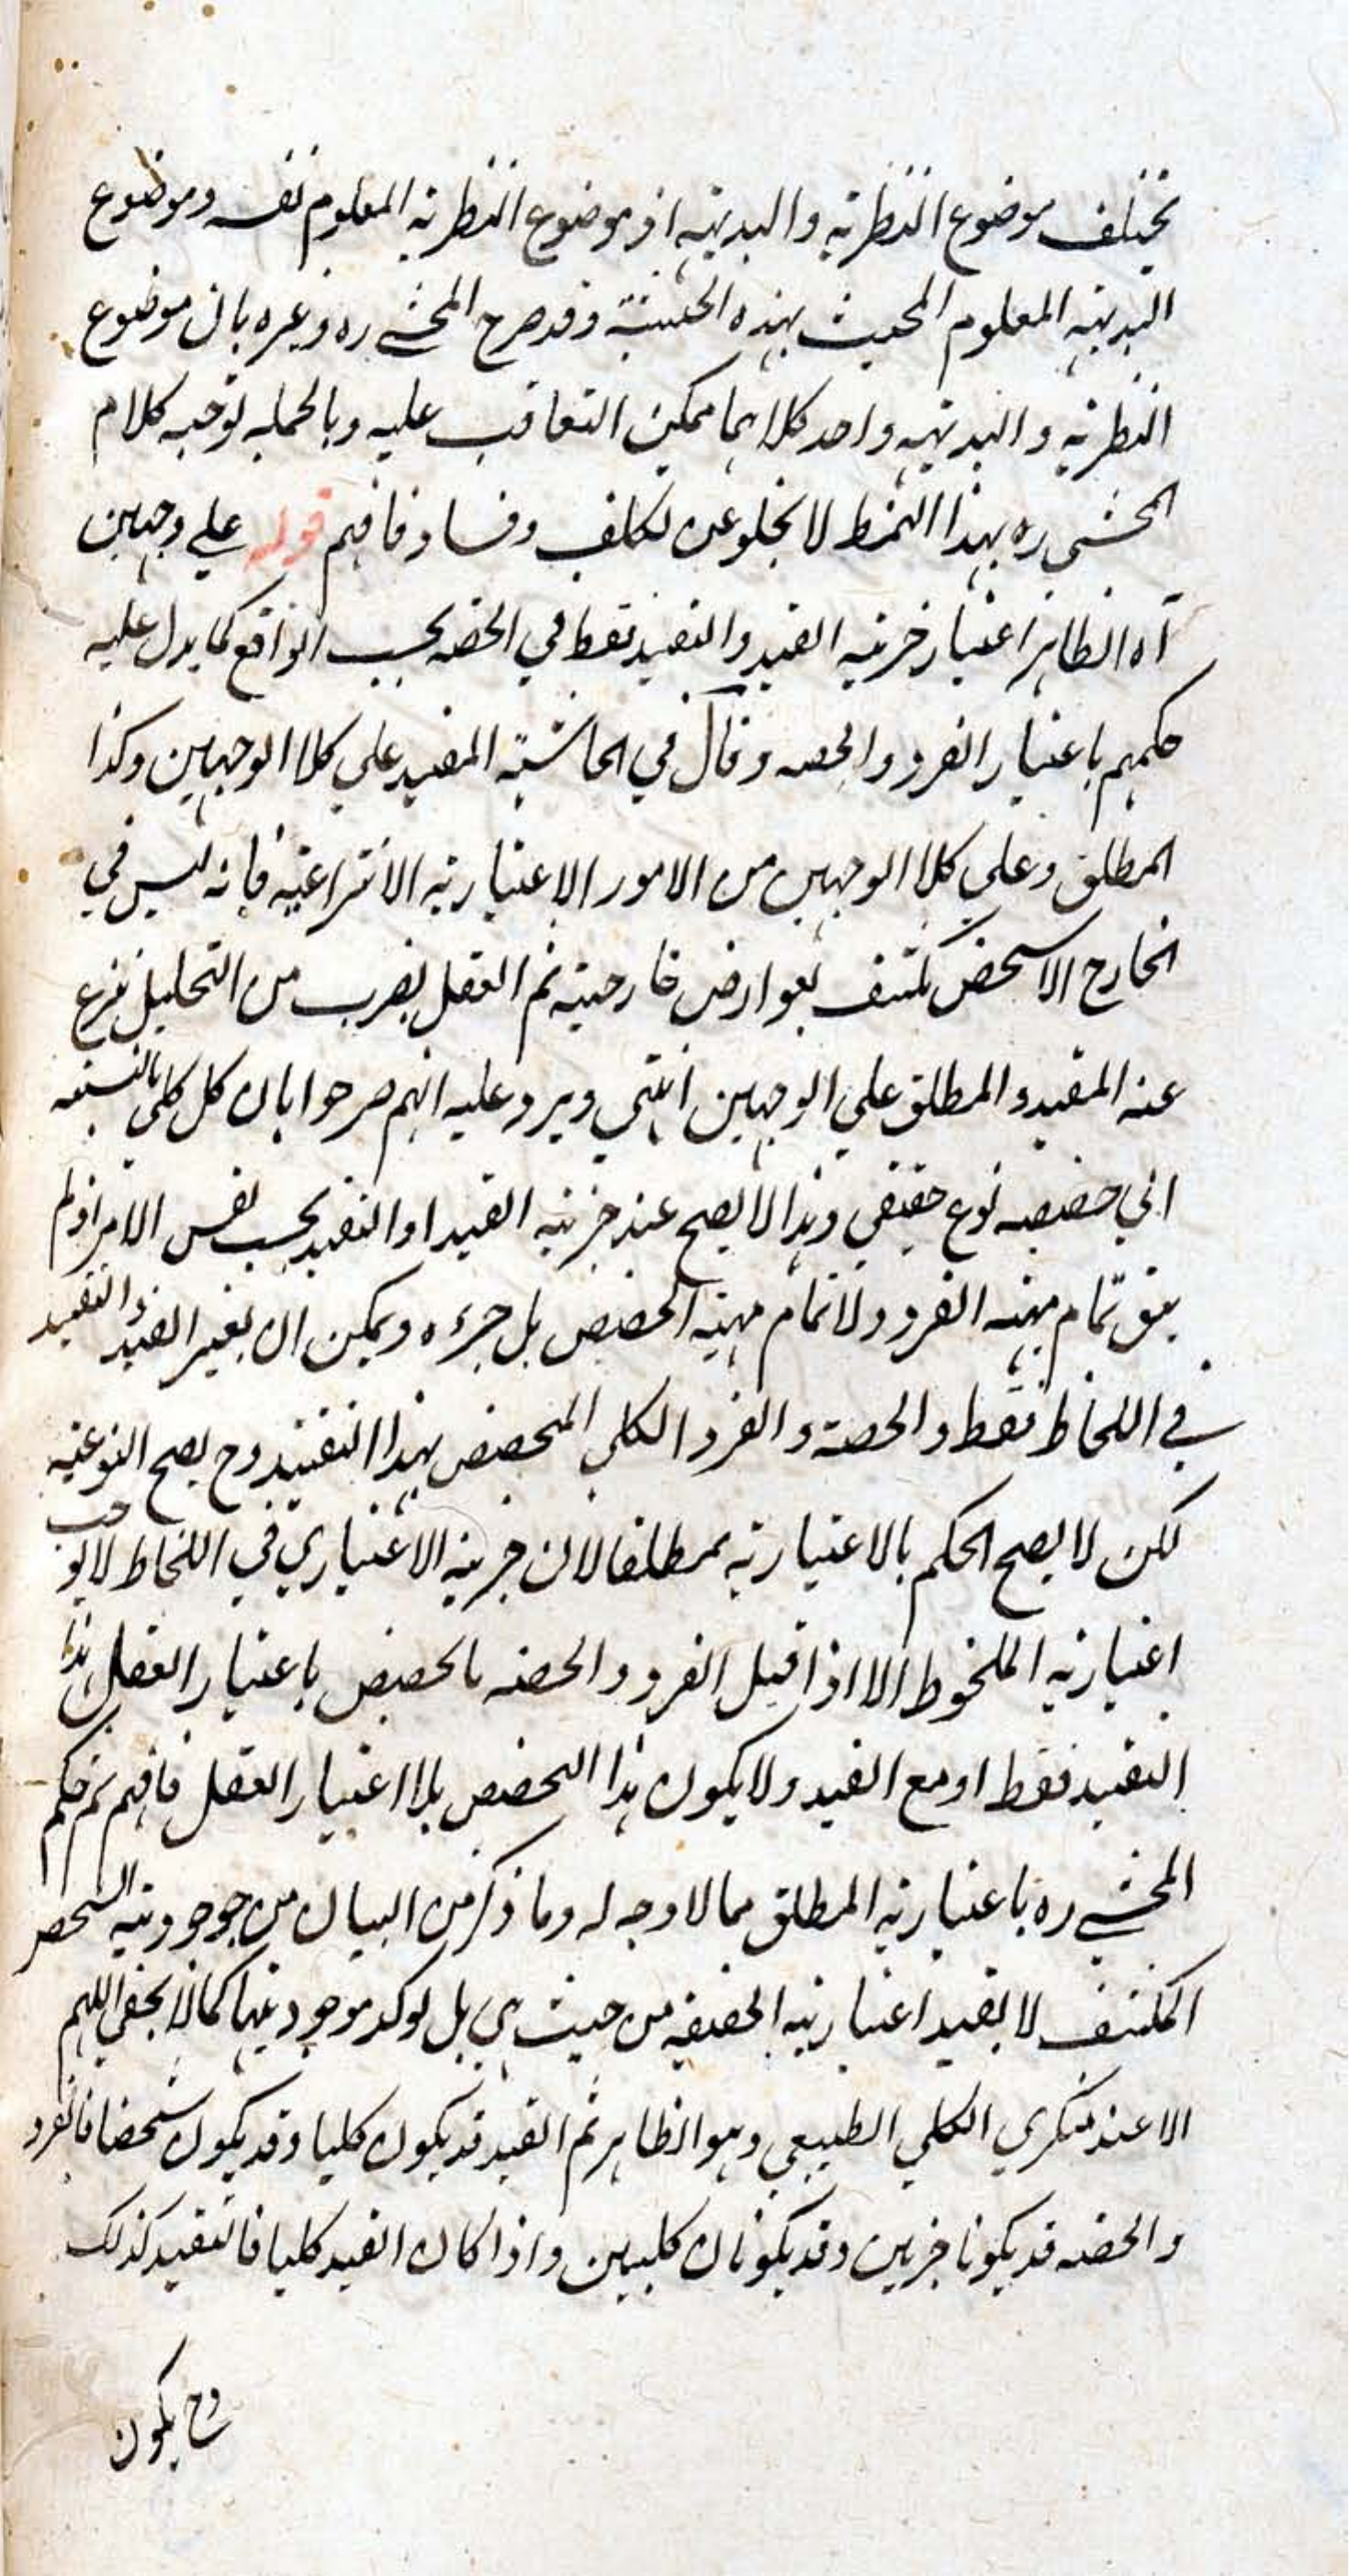 يختلف موضوع النظرية والبديهية اذ موضوع النظرية المعلوم نفسه وموضوع
البديهية المعلوم المحيث بهذه الحيثية وقد صرح المحشي ره وغيره بان موضوع
النظرية والبديهية واحد كلاهما ممكن التعاقب عليه وبالجملة توجيه كلام
المحشي ره بهذا النمط لا يخلو عن تكلف وفساد فافهم قوله على وجهين
آه الظاهر اعتبار جزئية القيد والتقييد فقط في الحصة بحسب الواقع كما يدل عليه
حكمهم باعتبار الفرد والحصة وقال في الحاشية المقيد على كلا الوجهين وكذا
المطلق وعلى كلا الوجهين من الامور الاعتبارية الانتزاعية فانه ليس في
الخارج الا شخص مكتنف بعوارض خارجية ثم العقل بضرب من التحليل ينزع
عنه المقيد والمطلق على الوجهين انتهى ويرد عليه انهم صرحوا بان كل كلي بالنسبة
الي حصصه نوع حقيقي وهذا لا يصح عند جزئية القيد او التقييد بحسب نفس الامر اذ لم
يبق تمام مهية الفرد ولا تمام مهية الحصص بل جزءه ويمكن ان يعتبر القيد والتقييد
في اللحاظ فقط والحصة والفرد الكلي المحصص بهذا التقييد وح يصح النوعية
لكن لا يصح الحكم بالاعتبارية مطلقا لان جزئية الاعتباري في اللحاظ لا يوجب
اعتبارية الملحوظ الا اذا قيل الفرد والحصة ما تحصص باعتبار العقل هذا
التقييد فقط او مع القيد ولا يكون هذا التحصص بلا اعتبار العقل فافهم ثم حكم
المحشي ره باعتبارية المطلق مما لا وجه له وما ذكر من البيان من موجودية الشخص
المكتنف لا يفيد اعتبارية الحقيقة من حيث هي بل يؤكد موجوديتها كما لا يخفى اللهم
الا عند منكري الكلي الطبيعي وهو الظاهر ثم القيد قد يكون كليا وقد يكون شخصا فالفرد
والحصة قد يكونا جزئين وقد يكونان كليين واذا كان القيد كليا فالتقييد كذلك
وح يكون